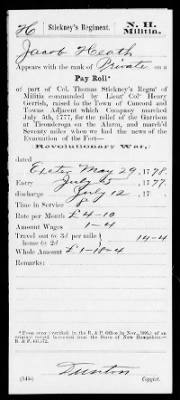 H Stickney's Regiment. N. H. Militia.
Jacob Heath
Appears with the rank of Private on a
Pay Roll*
of part of Col. Thomas Stickney's Regmt of
Militia commanded by Lieut Colo Henry
Gerrish, raised in the Town of Concord and
Towns Adjacent which Company marched
July 5th, 1777, for the relief of the Garrison
at Ticonderoga on the Alarm, and marched
Seventy miles when we had the news of the
Evacuation of the Fort—
Revolutionary War,
dated
Exeter May 29, 1778.
Entry July 5, 1777.
discharge July 12, 17
Time in Service 8
Rate per Month £4-10
Amount Wages 1-4
Travel out @ 3d per mile
home @ 2d 14-4
Whole Amount £1-18-4
Remarks:
Copyist.